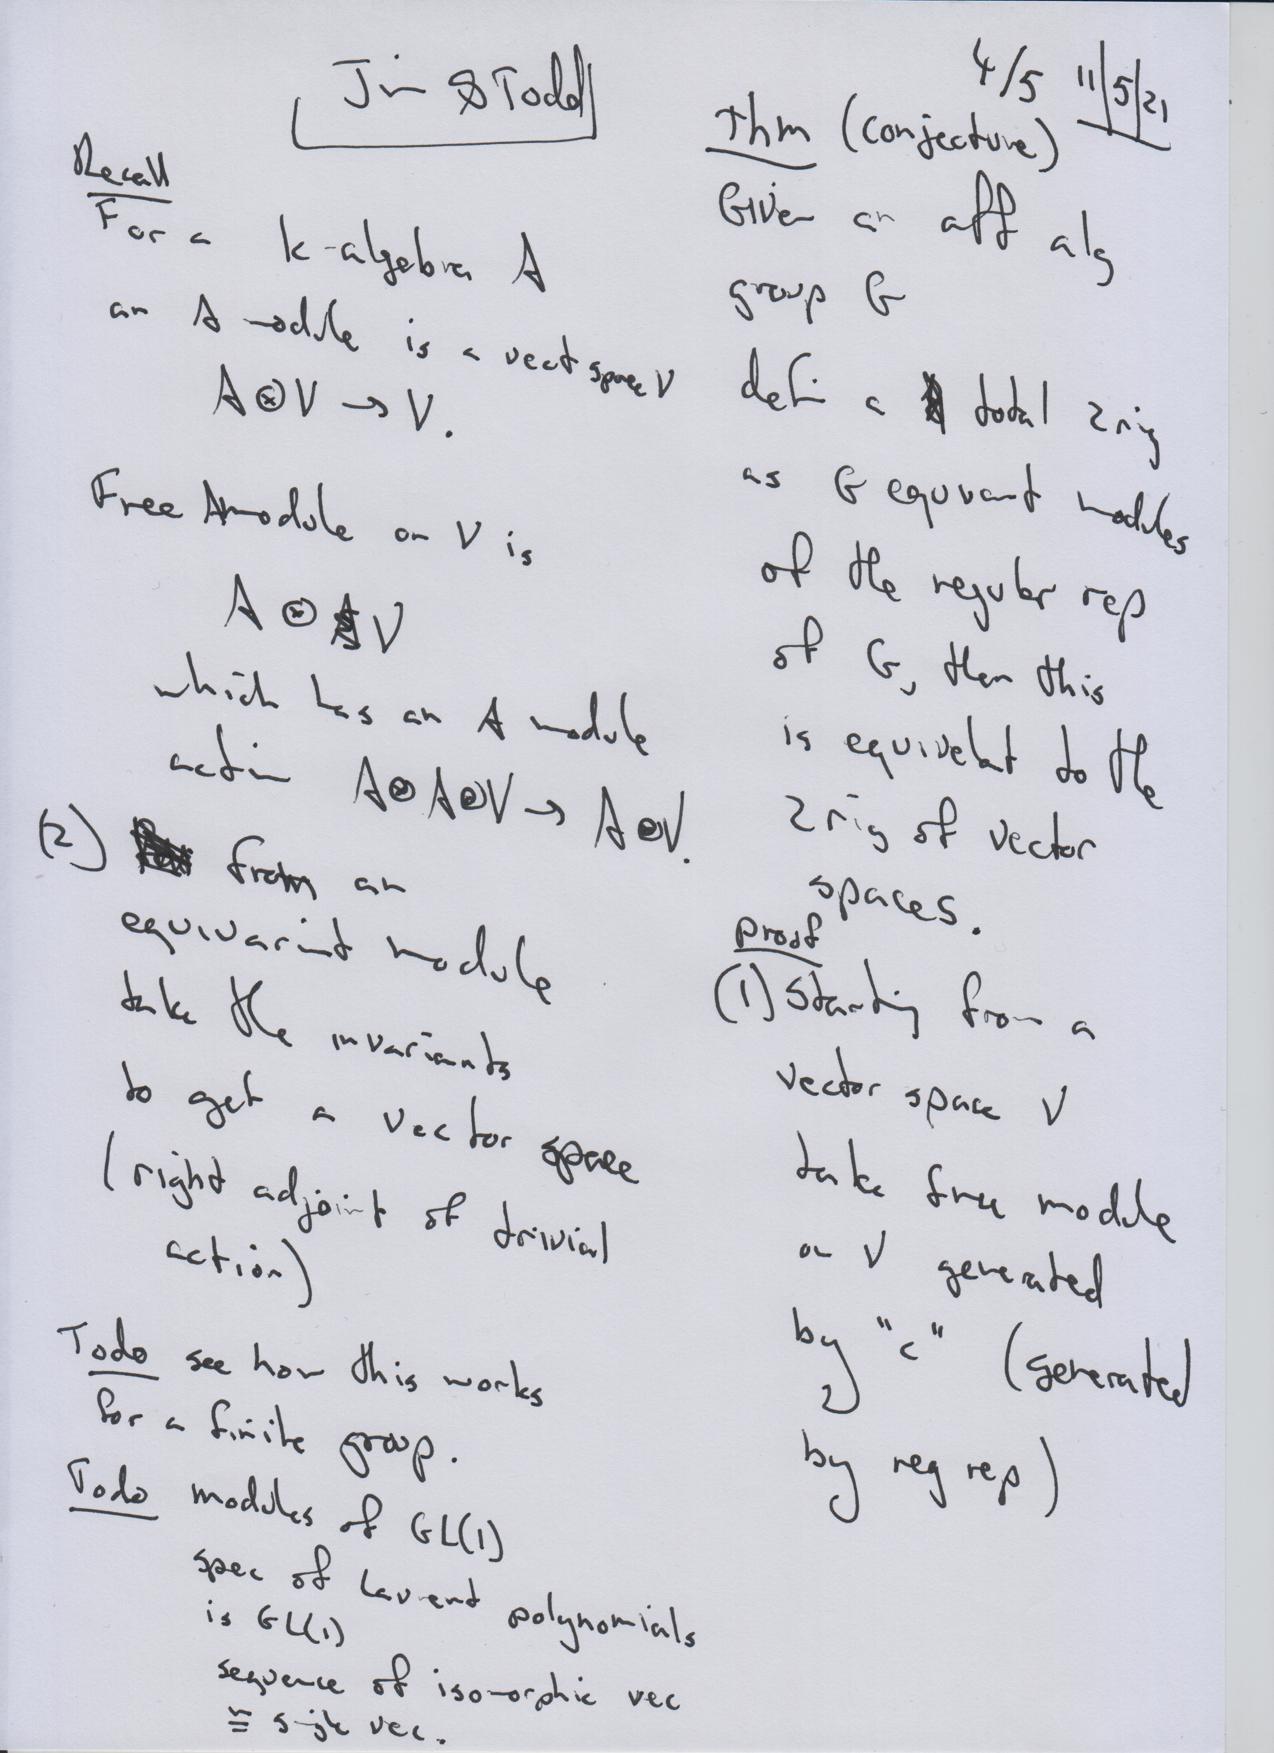 Jim & Todd
4/5 11/5/21
Recall
For a k-algebra A
an A module is a vect space V
A⊗V → V.
Free A module on V is
A ⊗ V
which has an A module
action A⊗A⊗V → A⊗V.
(2) from an
equivarint module
take the invariants
to get a vector space
(right adjoint of trivial
action)
Todo see how this works
for a finite group.
Todo modules of GL(1)
spec of Laurent polynomials
is GL(1)
sequence of isomorphic vec
≅ single vec.
Thm (conjecture)
Given an aff alg
group G
defin a total 2rig
as G equivant modules
of the regular rep
of G, then this
is equivelat to the
2rig of vector
spaces.
Proof
(1) Starting from a
vector space V
take free module
on V generated
by "c" (generated
by reg rep)